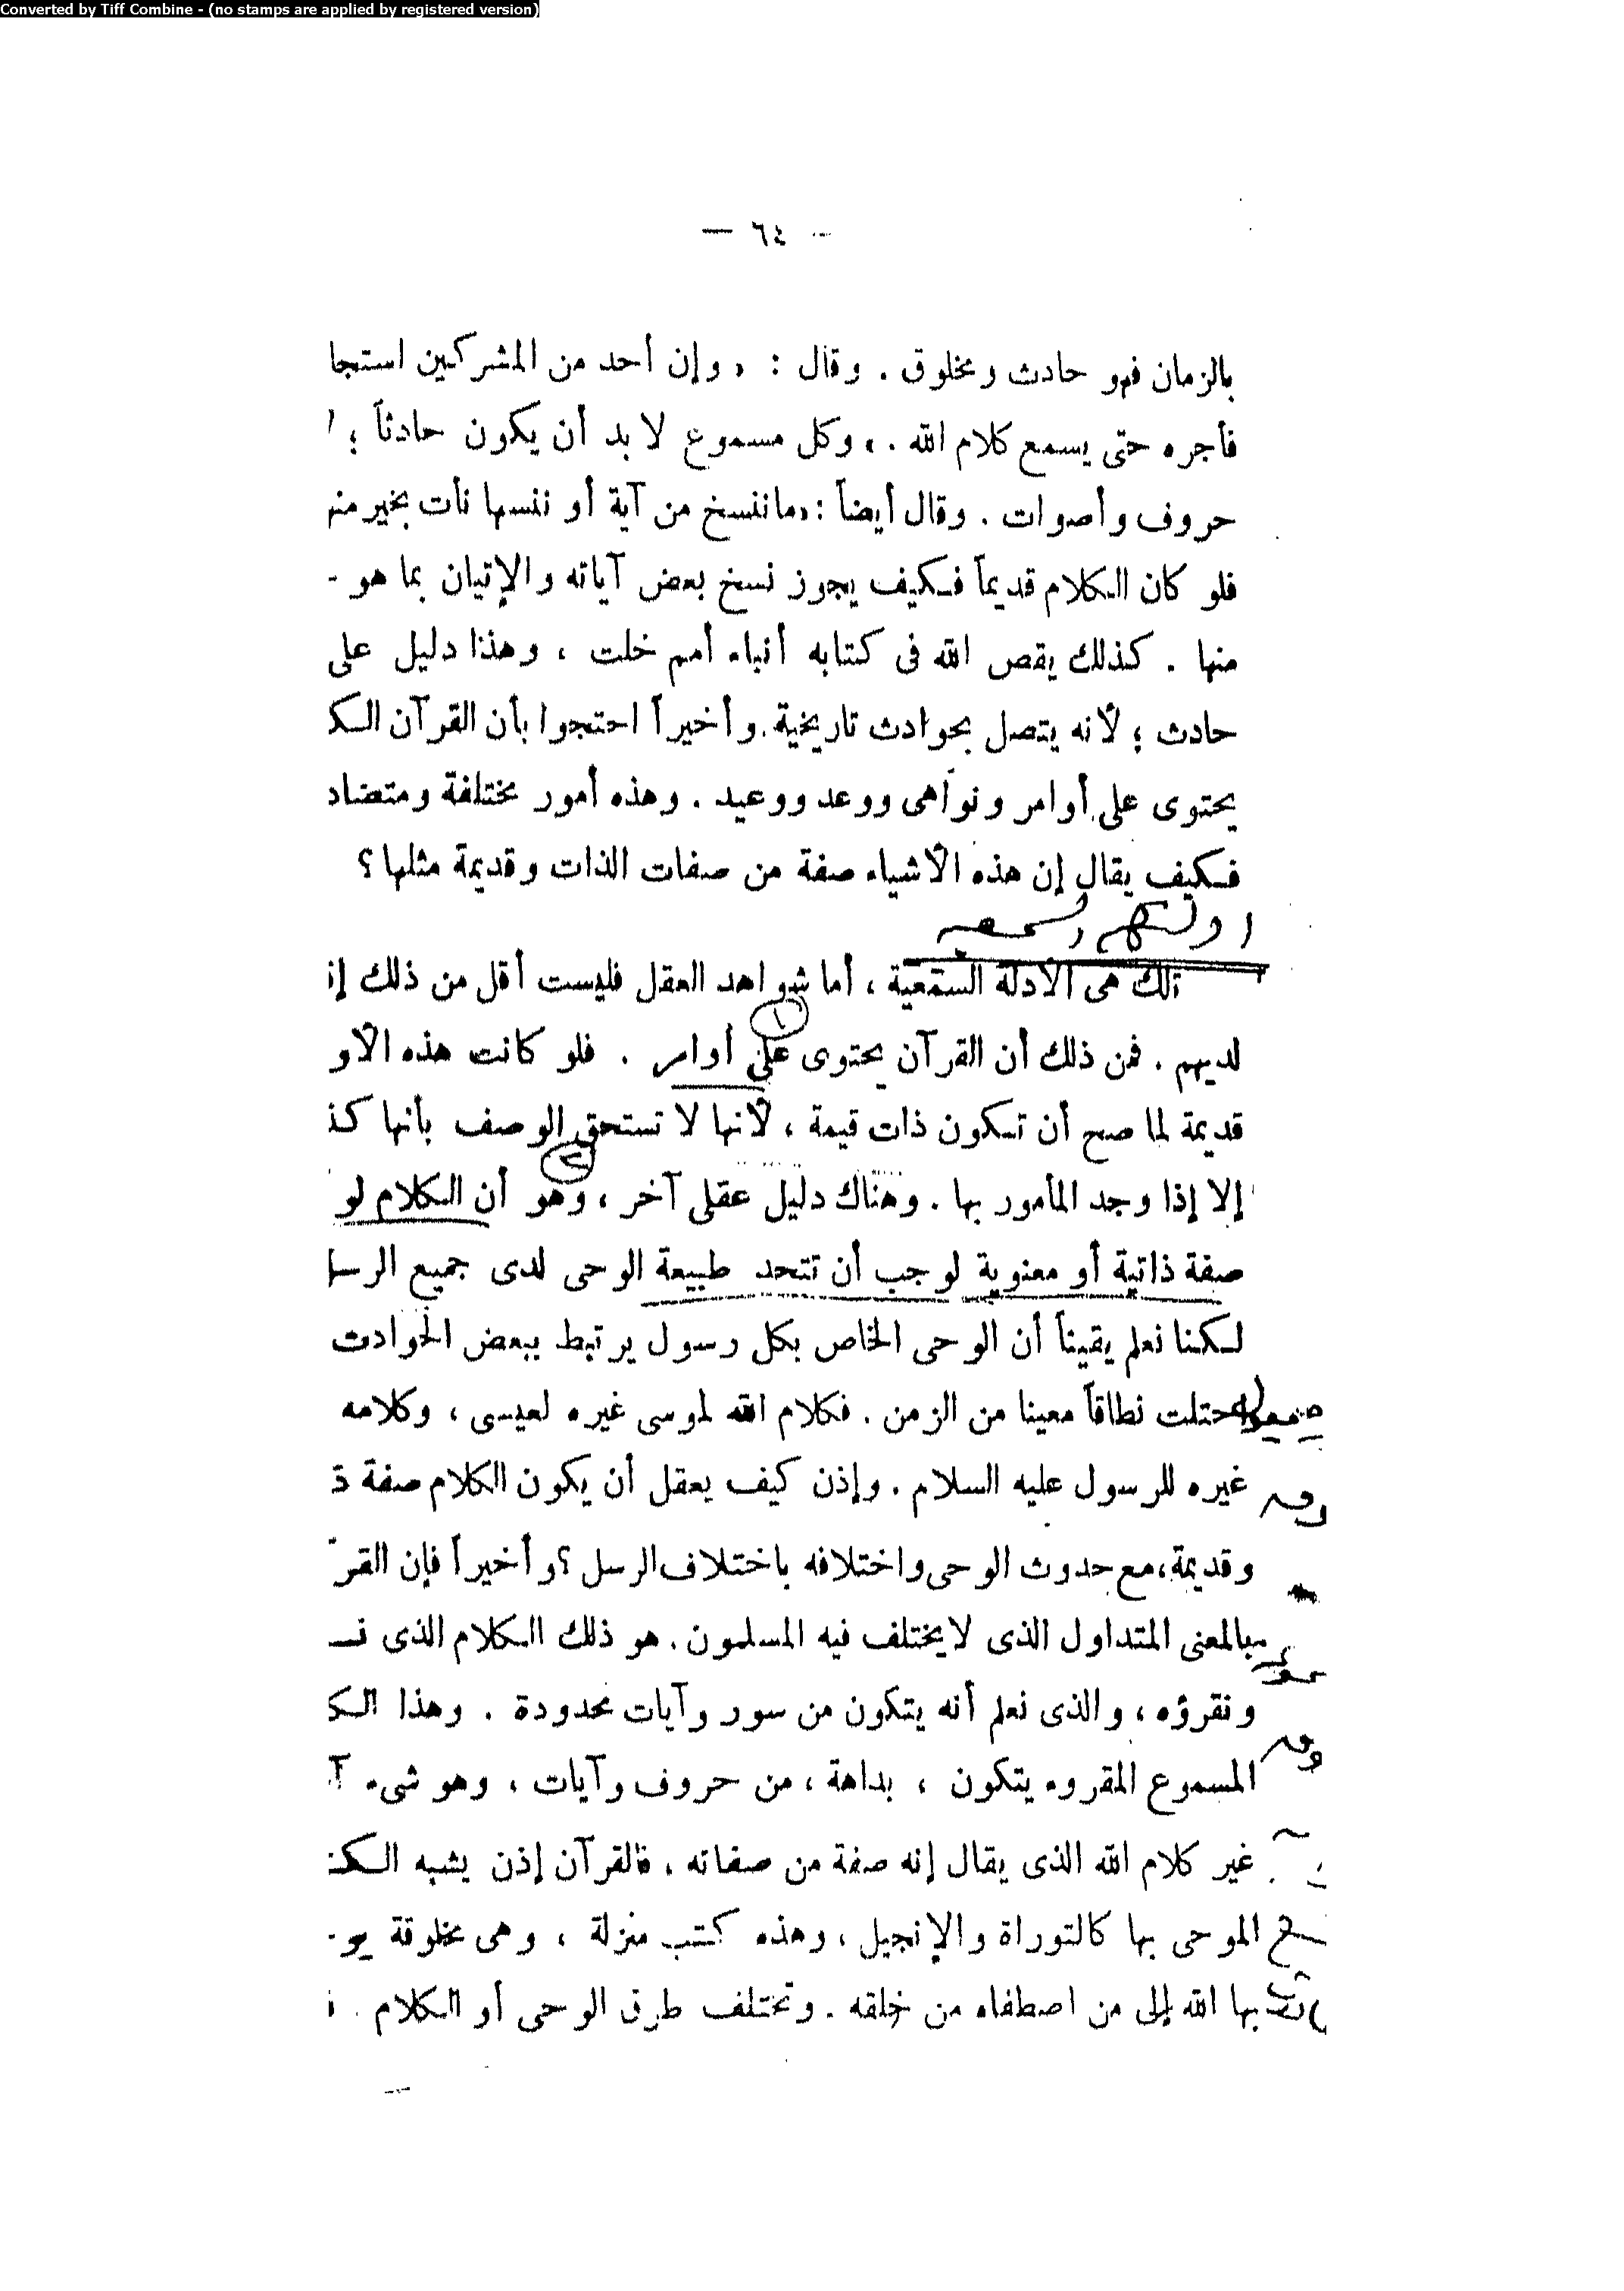 Converted by Tiff Combine - (no stamps are applied by registered version)
— ٦٤ —
بالزمان فهو حادث ومخلوق . وقال : « وإن أحد من المشركين استجا
فأجره حتى يسمع كلام الله . » وكل مسموع لا بد أن يكون حادثاً ؛
حروف وأصوات . وقال أيضاً : «ماننسخ من آية أو ننسها نأت بخير منه
فلو كان الكلام قديماً فكيف يجوز نسخ بعض آياته والإتيان بما هو
منها . كذلك يقص الله فى كتابه أنباء أمم خلت ، وهذا دليل على
حادث ؛ لأنه يتصل بحوادث تاريخية . وأخيراً احتجوا بأن القرآن الك
يحتوى على أوامر ونواهى ووعد ووعيد . وهذه أمور مختلفة ومتضاد
فكيف يقال إن هذه الأشياء صفة من صفات الذات وقديمة مثلها ؟
تلك هى الأدلة السمعية ، أما شواهد العقل فليست أقل من ذلك إ
١
لديهم . فمن ذلك أن القرآن يحتوى على أوامر . فلو كانت هذه الأو
قديمة لما صح أن تكون ذات قيمة ، لأنها لا تستحق الوصف بأنها كذ
٢
إلا إذا وجد المأمور بها . وهناك دليل عقلى آخر ، وهو أن الكلام لو
صفة ذاتية أو معنوية لوجب أن تتحد طبيعة الوحى لدى جميع الرسل
لكنا نعلم يقيناً أن الوحى الخاص بكل رسول يرتبط ببعض الحوادث
احتلت نطاقاً معينا من الزمن . فكلام الله لموسى غيره لعيسى ، وكلامه
غيره للرسول عليه السلام . وإذن كيف يعقل أن يكون الكلام صفة ذ
وقديمة ، مع حدوث الوحى واختلافه باختلاف الرسل ؟ وأخيراً فإن القرآ
بالمعنى المتداول الذى لا يختلف فيه المسلمون . هو ذلك الكلام الذى نس
ونقرؤه ، والذى نعلم أنه يتكون من سور وآيات محدودة . وهذا الك
المسموع المقروء يتكون ، بداهة ، من حروف وآيات ، وهو شىء آ
غير كلام الله الذى يقال إنه صفة من صفاته . فالقرآن إذن يشبه الكت
الموحى بها كالتوراة والإنجيل ، وهذه كتب منزلة ، وهى مخلوقة يو
بها الله إلى من اصطفاه من خلقه . وتختلف طرق الوحى أو الكلام .